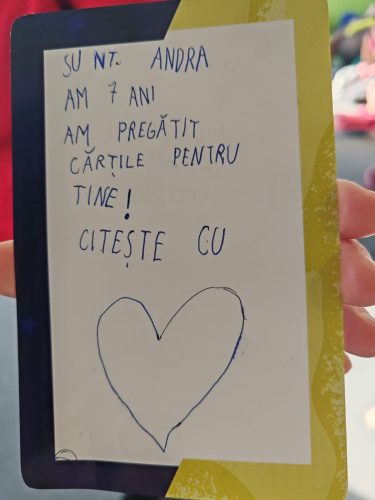 SUNT ANDRA
AM 7 ANI
AM PREGĂTIT
CĂRȚILE PENTRU
TINE!
CITEȘTE CU